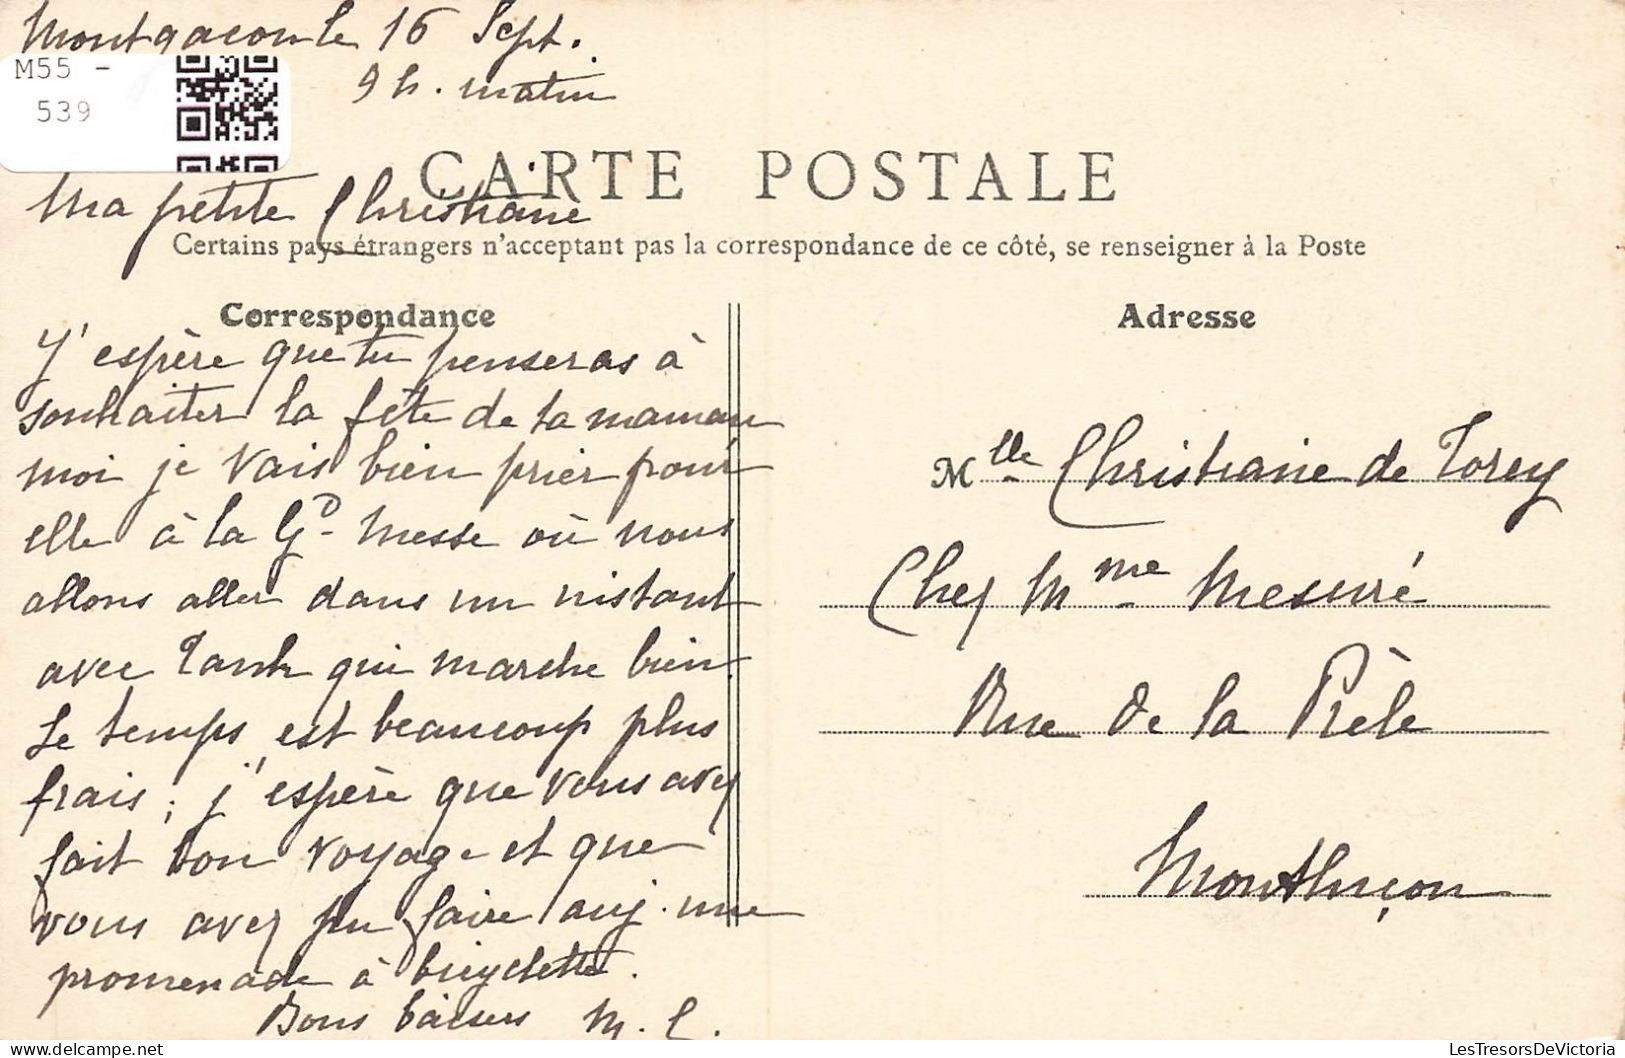 Montgacon le 16 Sept.
9 h. matin
M55 -
539
CARTE POSTALE
Ma petite Christiane
Certains pays étrangers n'acceptant pas la correspondance de ce côté, se renseigner à la Poste
Correspondance
J'espère que tu penseras à
souhaiter la fête de ta maman
moi je vais bien prier pour
elle à la Gd Messe où nous
allons aller dans un instant
avec qui marche bien.
Le temps est beaucoup plus
frais ; j'espère que vous avez
fait bon voyage et que
vous avez pu faire auj. une
promenade à bicyclette.
Bons baisers M. C.
Adresse
Mlle Christiane de Torcy
Chez Mme Mesuré
Rue de la Prèle
Montluçon
LesTresorsDeVictoria